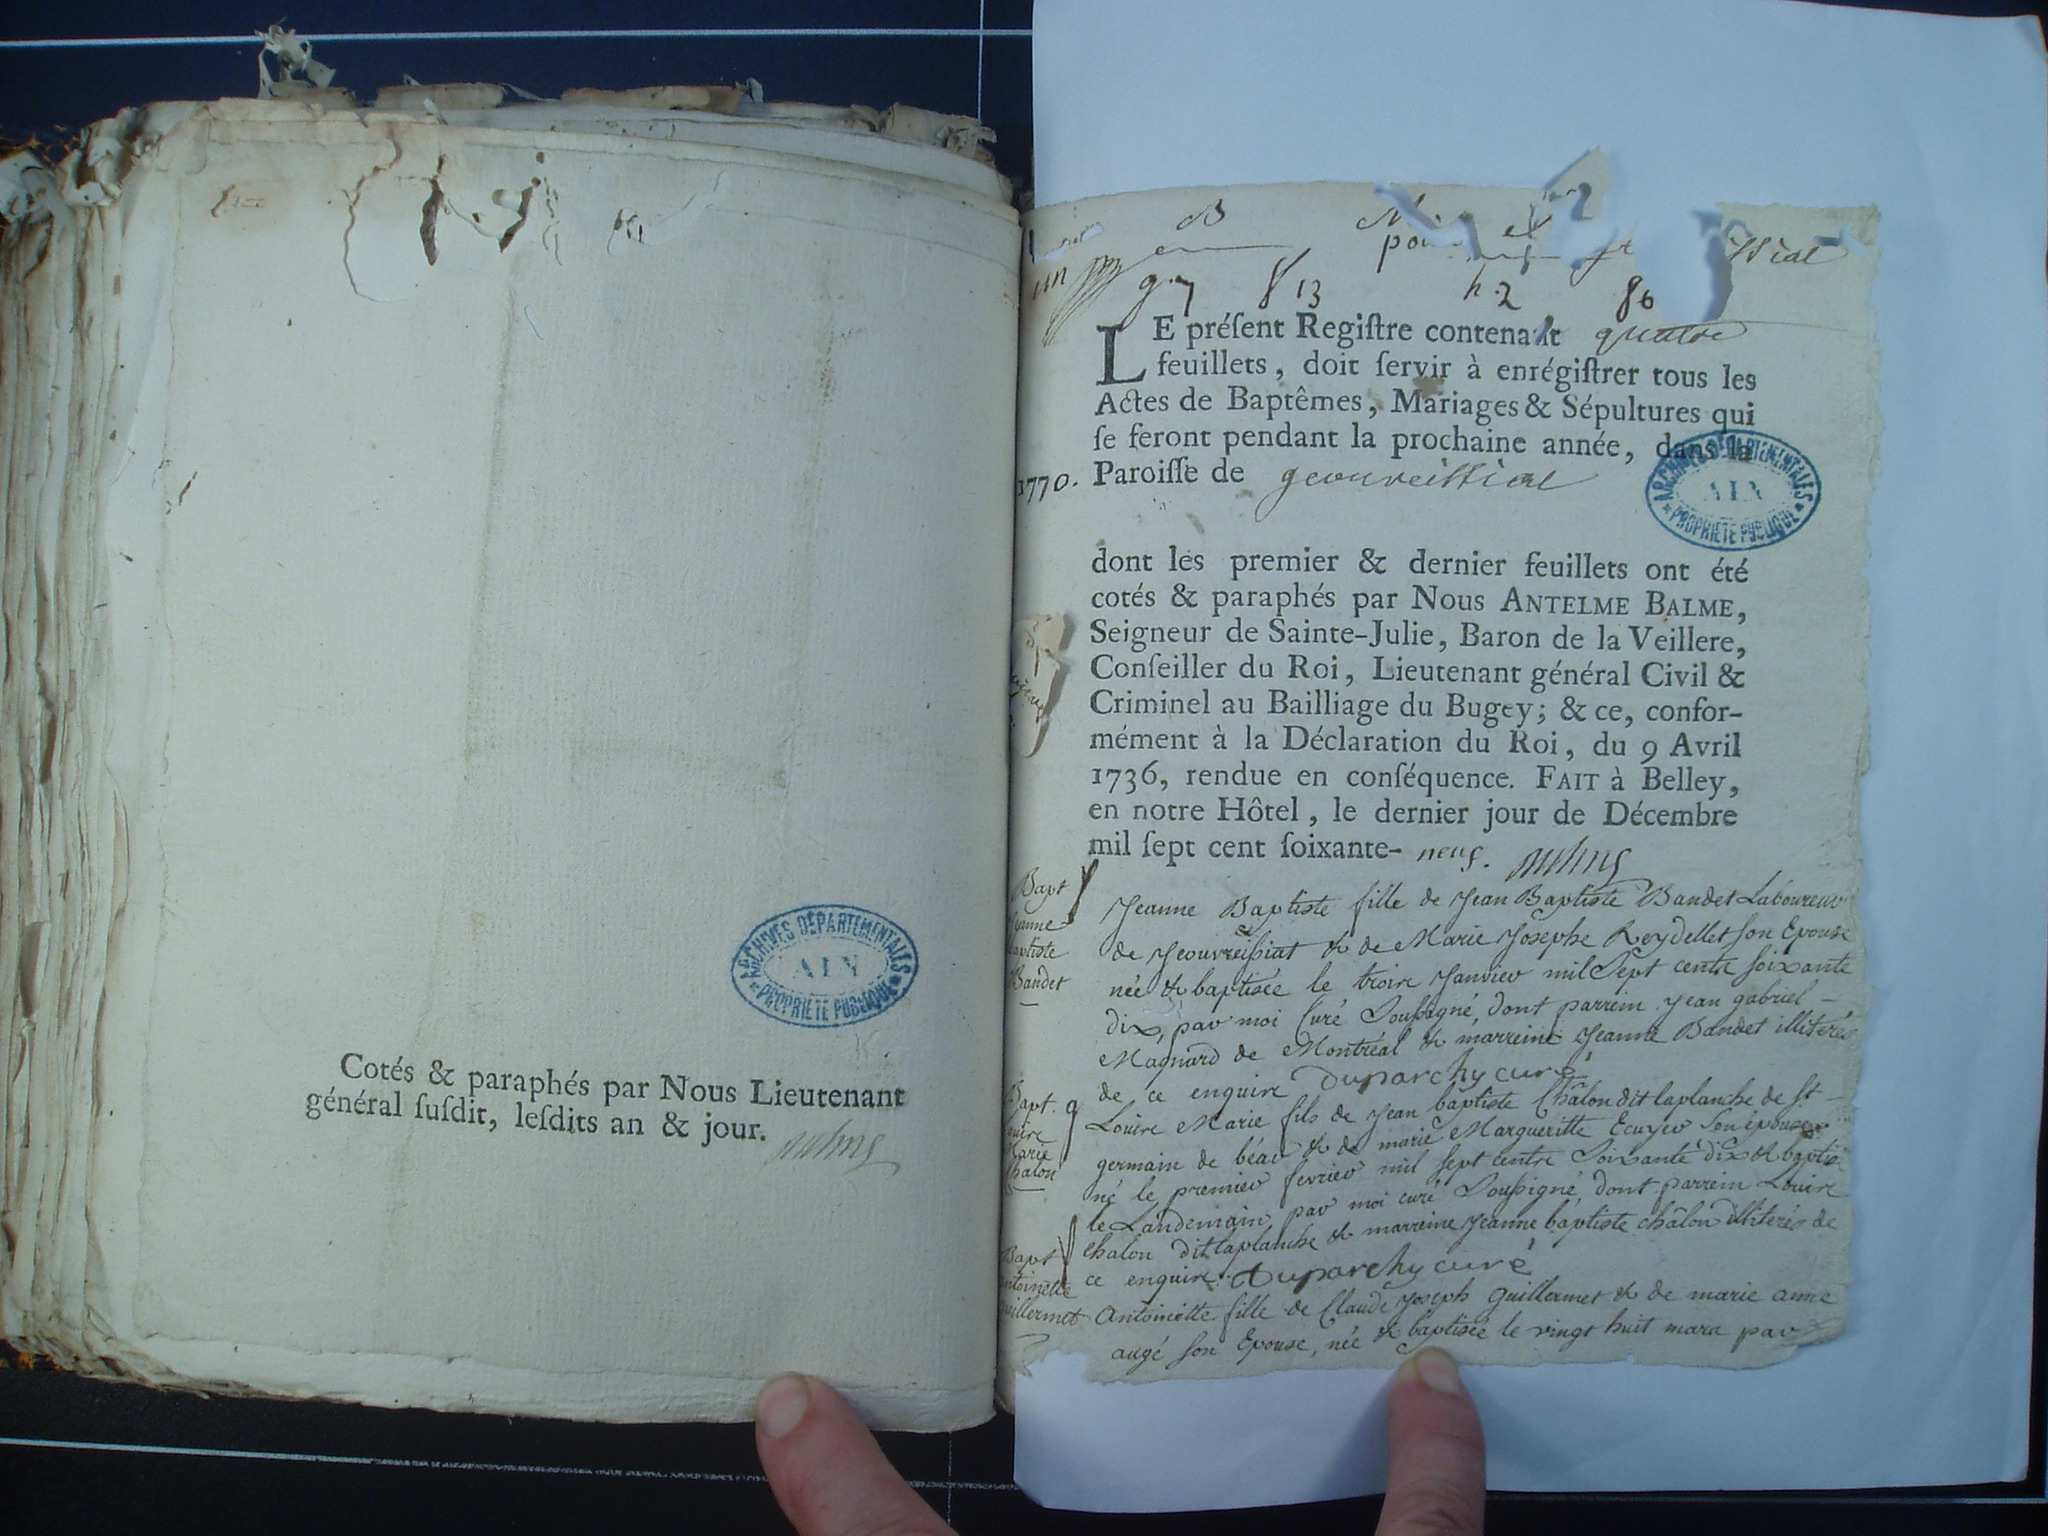 ARCHIVES DÉPARTEMENTALES
AIN
PROPRIÉTÉ PUBLIQUE
Cotés & paraphés par Nous Lieutenant
général ſuſdit, leſdits an & jour.
B
g. 7 13 h. 2 86
LE préſent Regiſtre contenant quatre
feuillets, doit ſervir à enrégiſtrer tous les
Actes de Baptêmes, Mariages & Sépultures qui
ſe feront pendant la prochaine année, dans la
1770. Paroiſſe de geoureissiat
ARCHIVES DÉPARTEMENTALES
AIN
PROPRIÉTÉ PUBLIQUE
dont les premier & dernier feuillets ont été
cotés & paraphés par Nous ANTELME BALME,
Seigneur de Sainte-Julie, Baron de la Veillere,
Conſeiller du Roi, Lieutenant général Civil &
Criminel au Bailliage du Bugey; & ce, confor-
mément à la Déclaration du Roi, du 9 Avril
1736, rendue en conſéquence. FAIT à Belley,
en notre Hôtel, le dernier jour de Décembre
mil ſept cent ſoixante- neuf.
Bapt
jeanne
baptiste
Bandet
Jeanne Baptiste fille de Jean Baptiste Bandet Laboureur
de Jeourreissiat & de Marie Josephe Reydellet son Epouse
née & baptisée le trois Janvier mil Sept cents soixante
dix, par moi Curé Soussigné, dont parrein jean gabriel –
Magnard de Montréal & marreine Jeanne Bandet illiterés
de ce enquis Duparchy curé
Bapt.
Louis
Marie
Chalon
Louis Marie fils de Jean baptiste Châlon dit laplanche de St –
germain de béar & de marie Margueritte Ecuyer Son épouse
né le premier fevrier mil sept cents Soixante dix & baptisé
le Landemain, par moi curé Soussigné, dont parrein Louis
Chalon dit laplanche & marreine jeanne baptiste châlon illiterés de
ce enquis. Duparchy curé
Bapt
antoinette
guillermet
Antoinette fille de Claude Joseph guillermet & de marie anne
augé son Epouse, née & baptisée le vingt huit mars par